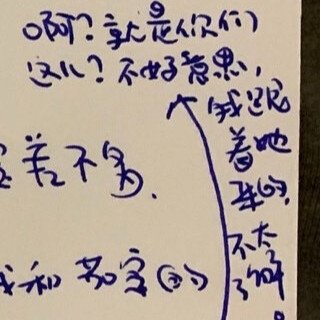 啊?就是你们
这儿?不好意思,
我is跟
着她
来的,
不太
了解。
差不多.
我和苏宝的